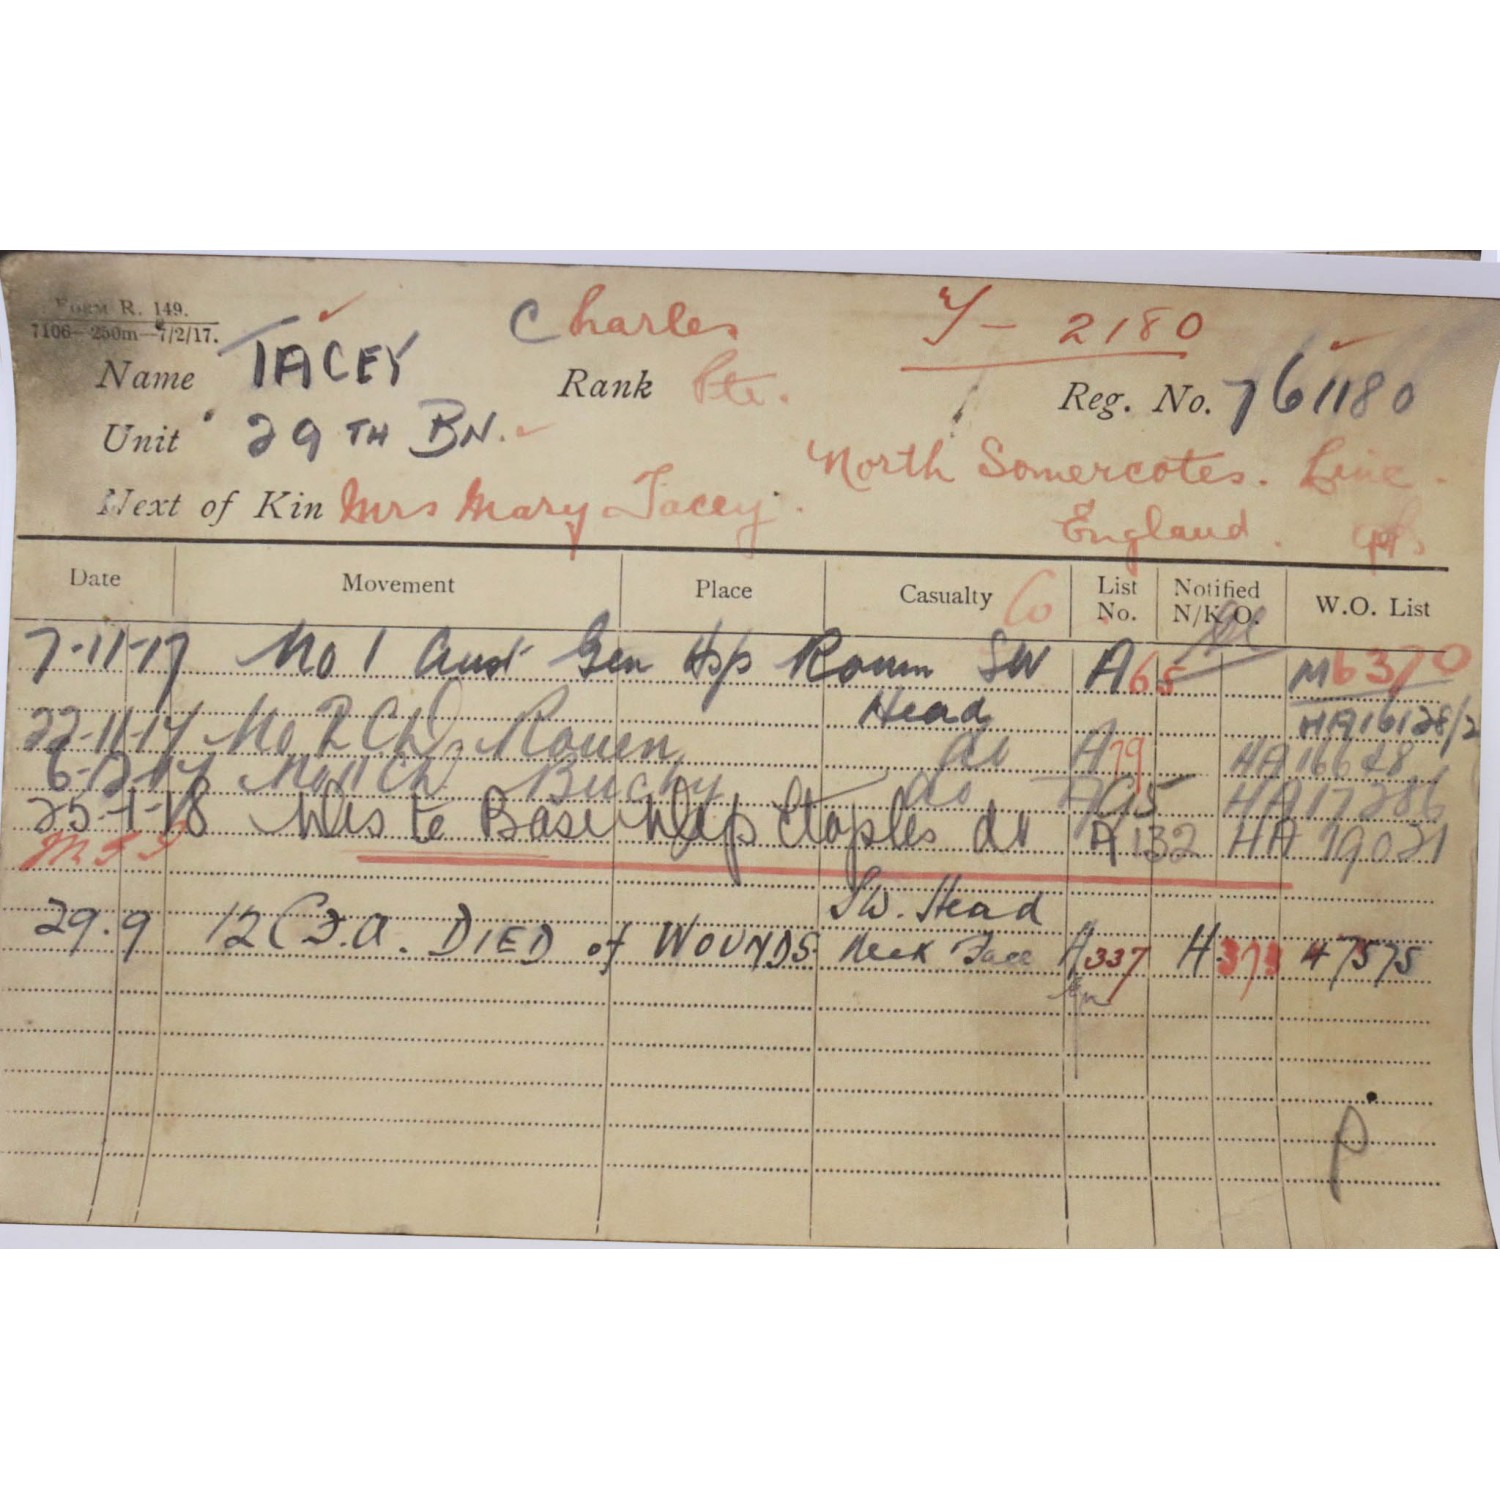 FORM R. 149.
7106—250m—7/2/17.
Name TACEY Charles Rank Pte. Y - 2180 Reg. No. 761180
Unit 29TH BN.
Next of Kin Mrs Mary Tacey. North Somercotes. Linc.
England.
Date Movement Place Casualty Co List No. Notified N/K O. W.O. List
7-11-17 No 1 Aust Gen Hsp Rouen SW A65 M6370
Head HA16128/2
22-11-17 No 2 CD Rouen do A79 HA16648
6-12-17 No 11 CD Buchy do A95 HA17286
25-1-18 Wis to Base Dep Etaples do A132 HA 19021
SW. Head
29.9 12 C F.A. DIED of WOUNDS Neck Face A337 H373 47575
P